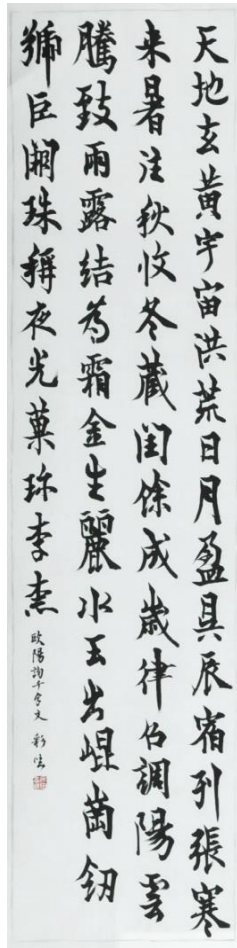 天地玄黃宇宙洪荒日月盈昃辰宿列張寒
来暑往秋收冬蔵閏餘成歲律召調陽雲
騰致雨露結為霜金生麗水玉出崐崗釰
號巨闕珠稱夜光菓珎李柰
欧陽詢千字文